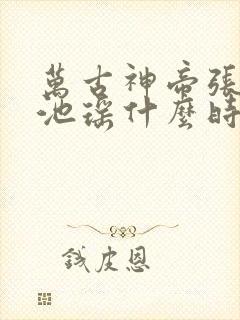 萬古神帝張
池瑤什麼時
錢皮恩